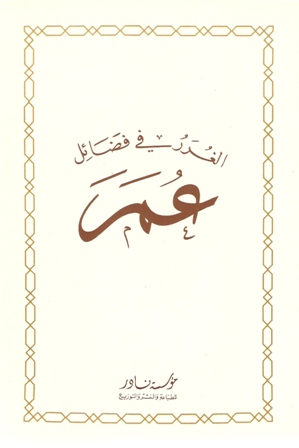 الغُرَرُ في فَضَائِل
عُمَرَ
مؤسسة نادر
للطباعة والنشر والتوزيع